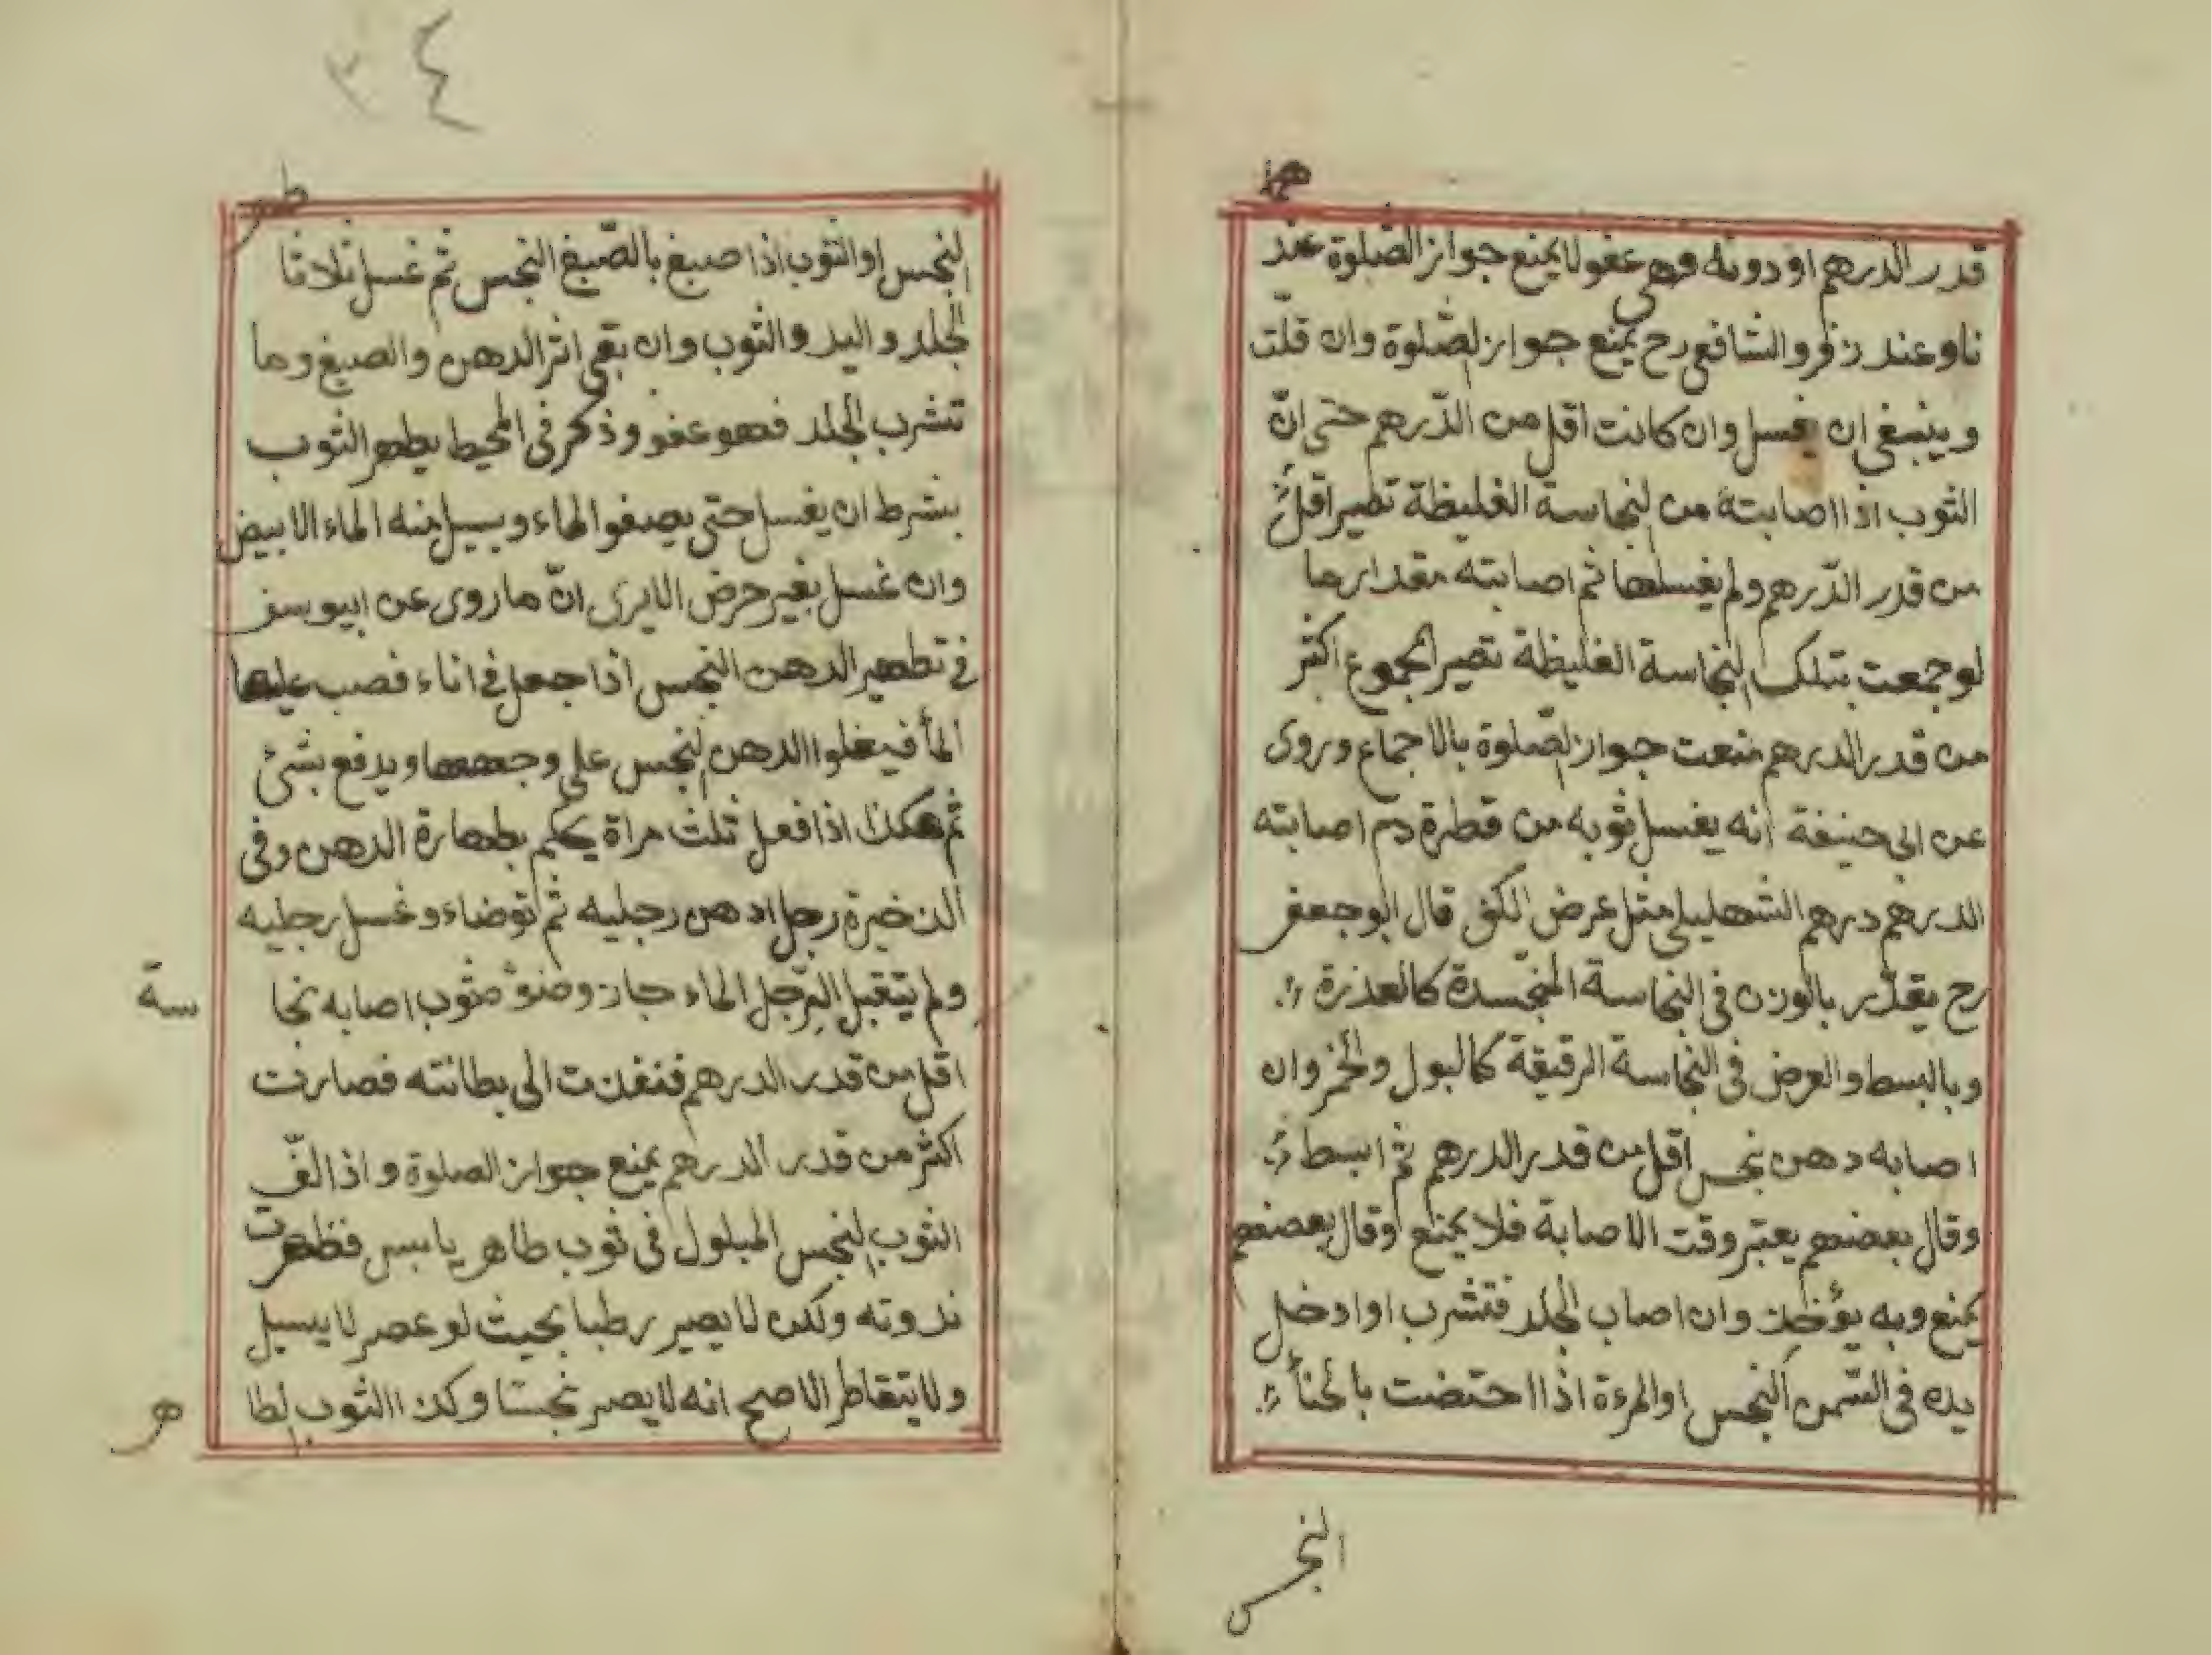 هما
قدر الدرهم او دونه فهى عفو لا يمنع جواز الصّلوة عند
نا وعند زفر والشافعى رح يمنع جواز الصّلوة وان قلّت
وينبغى ان يغسل وان كانت اقل من الدّرهم حتى انّ
الثوب اذا اصابته من النجاسة الغليظة تطير اقل
من قدر الدّرهم ولم يغسلها ثم اصابته مقدار ما
لو جمعت بتلك النجاسة الغليظة تصير المجموع اكثر
من قدر الدرهم منعت جواز الصّلوة بالاجماع وروى
عن ابى حنيفة انه يغسل ثوبه من قطرة دم اصابته
الدرهم درهم الشهليلى مثل عرض الكف قال ابو جعفر
رح يقدّر بالوزن فى النجاسة المنجّسدة كالعذرة
وبالبسط والعرض فى النجاسة الرقيقة كالبول والخمر وان
اصابه دهن نجس اقل من قدر الدرهم ثم ابسط
وقال بعضهم يعتبر وقت الاصابة فلا يمنع وقال بعضهم
يمنع وبه يؤخذ وان اصاب الجلد فتشرب او ادخل
يده فى السّمن النجس او المرءة اذا احتضت بالحنأ
النجس
٣٤
طهر
النجس او الثوب اذا صبغ بالصّبغ النجس ثم غسل ثلاثا
الجلد واليد والثوب وان بقى اثر الدهن والصبغ وما
تشرب الجلد فهو عفو وذكر فى المحيط يطهر الثوب
بشرط ان يغسل حتى يصفوا الماء ويسيل منه الماء الابيض
وان غسل بغير حرض الايرى انّ ما روى عن ابيوسف
فى تطهير الدهن النجس اذا جعل فى اناء فصب عليها
المأ فيغلوا الدهن النجس على وجهها ويدفع بشئ
ثم هكذا اذا فعل ثلث مراة يحكم بطهارة الدهن وفى
الذخيرة رجل ادهن رجليه ثم توضاء وغسل رجليه
ولم يتقبل الرّجل الماء جاز وضوٴ ثوب اصابه نجا
سة
اقل من قدر الدرهم فنفذت الى بطانته فصارت
اكثر من قدر الدرهم يمنع جواز الصلوة واذ الفّ
الثوب النجس المبلول فى ثوب طاهر يابس فظهرت
ندوته ولكن لا يصير رطبا بحيث لو عصر لا يسيل
ولا يتقاطر الاصح انه لا يصر نجسّا وكذا الثوب الطا
هر